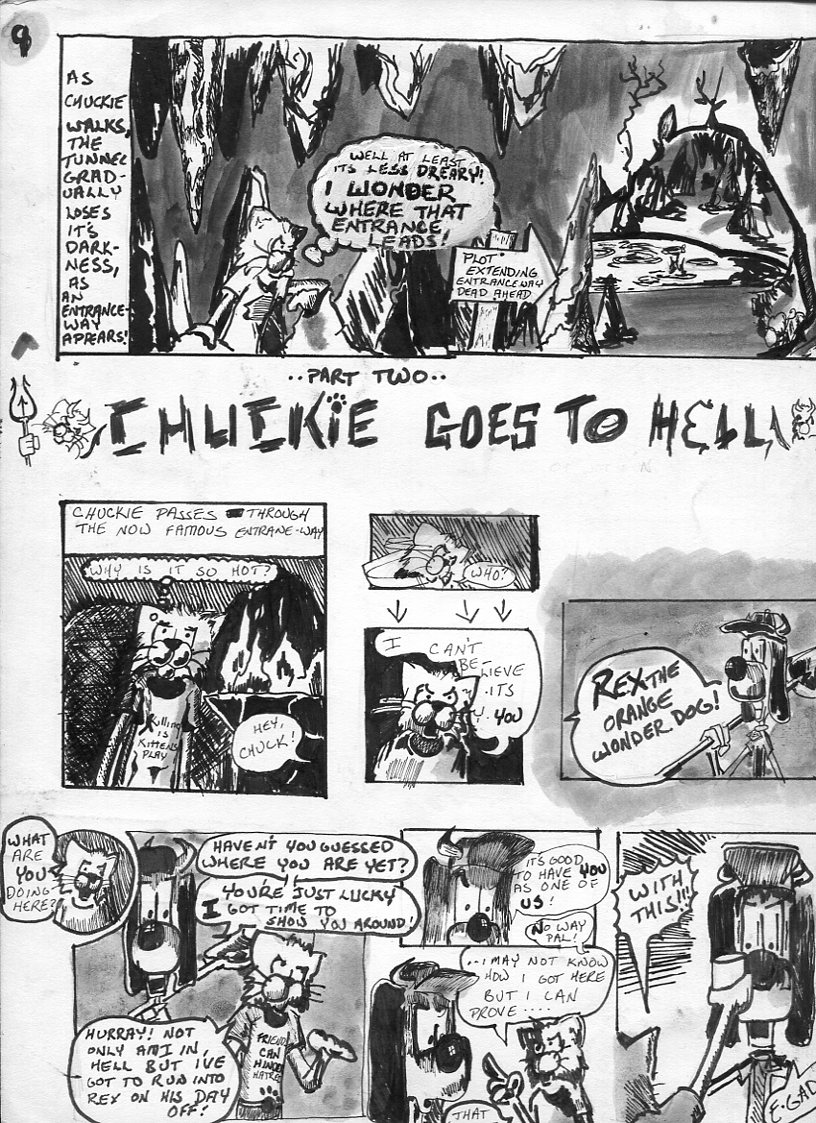 9
AS
CHUCKIE
WALKS,
THE
TUNNEL
GRAD-
UALLY
LOSES
IT'S
DARK-
NESS,
AS
AN
ENTRANCE-
WAY
APPEARS!
WELL AT LEAST
ITS LESS DREARY!
I WONDER
WHERE THAT
ENTRANCE
LEADS!
PLOT
EXTENDING
ENTRANCEWAY
DEAD AHEAD
..PART TWO..
CHUCKIE GOES TO HELL
CHUCKIE PASSES THROUGH
THE NOW FAMOUS ENTRANE-WAY
WHY IS IT SO HOT?
Killing
IS
KITTENS
PLAY
HEY,
CHUCK!
WHO?
I CAN'T
BE-
LIEVE
ITS
YOU
REX THE
ORANGE
WONDER DOG!
WHAT
ARE
YOU
DOING
HERE?
HAVEN'T YOU GUESSED
WHERE YOU ARE YET?
YOU'RE JUST LUCKY
I GOT TIME TO
SHOW YOU AROUND!
HURRAY! NOT
ONLY AM I IN
HELL BUT I'VE
GOT TO RUN INTO
REX ON HIS DAY
OFF!
CAN
IT'S GOOD
TO HAVE YOU
AS ONE OF
US!
NO WAY
PAL!
..I MAY NOT KNOW
HOW I GOT HERE
BUT I CAN
PROVE ....
THAT
WITH
THIS!!!
E-GAD